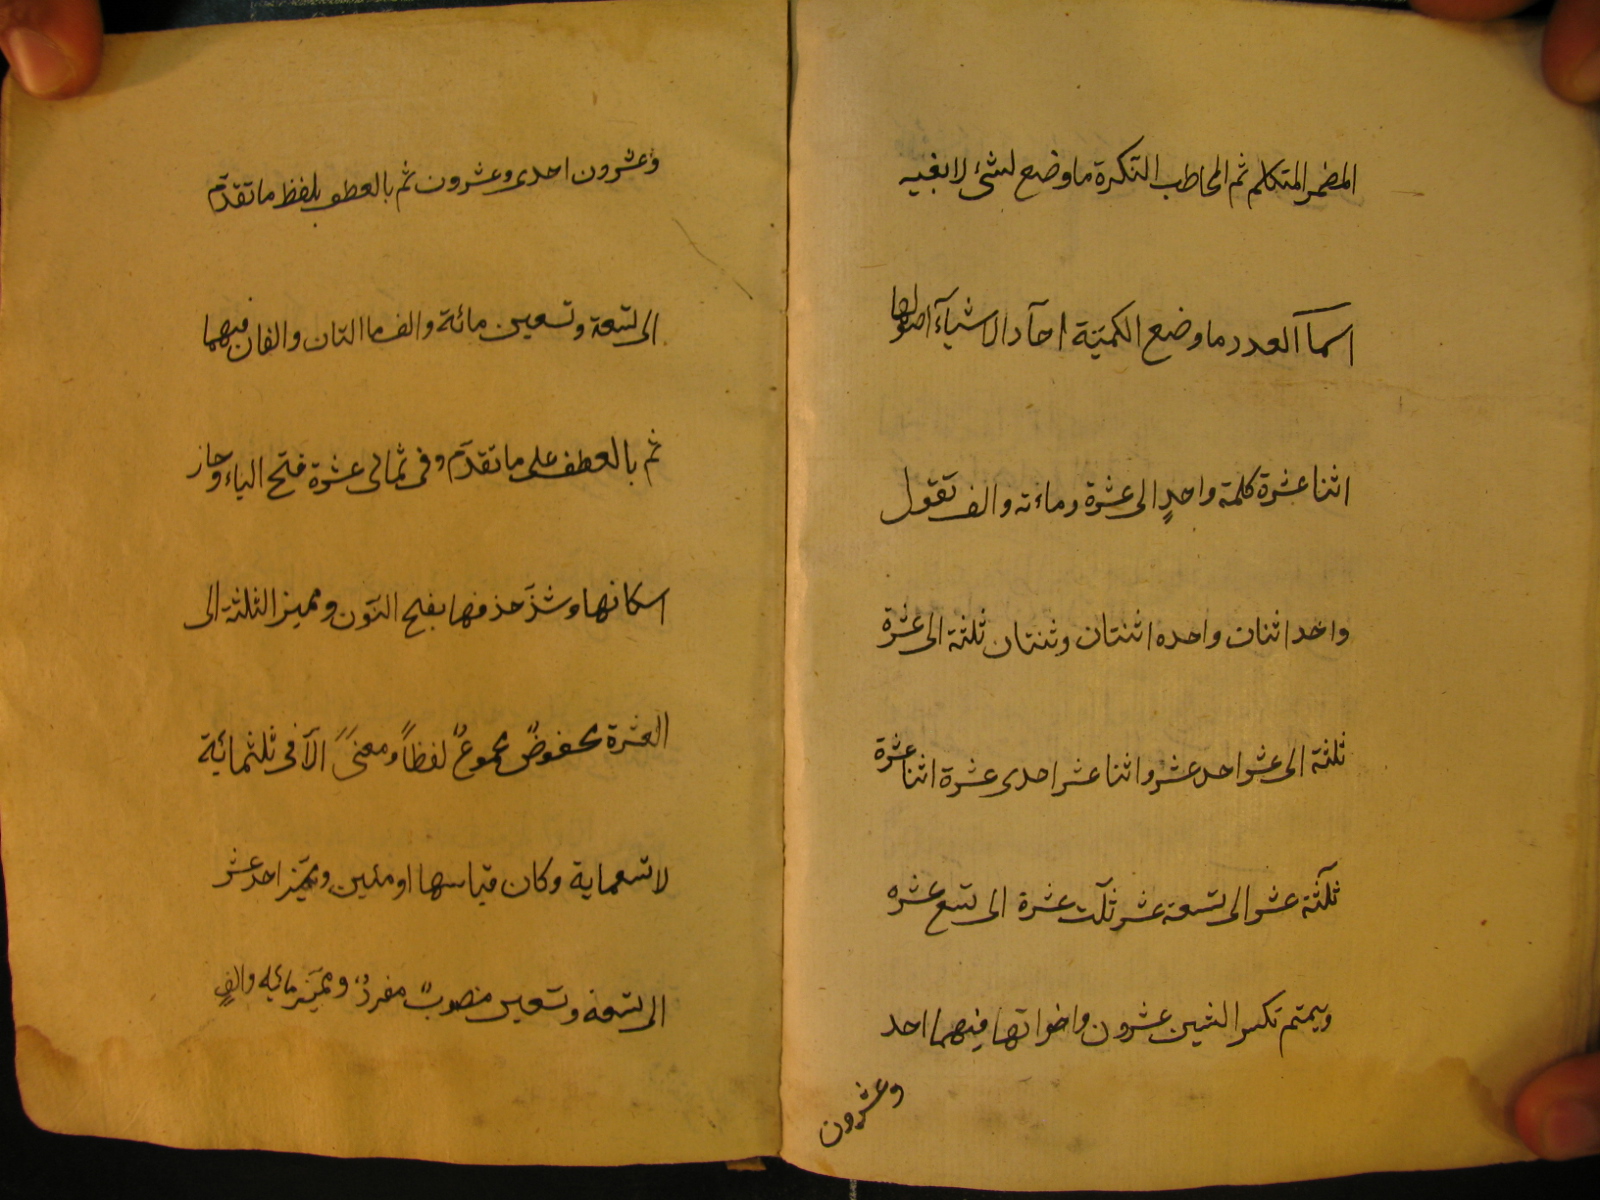 المضمر المتكلم ثم المخاطب النكرة ما وضع لشئ لا بغيبه
اسمآ العدد ما وضع الكميّة احآد الاشيآء اصولها
اثنا عشرة كلمة واحدٍ الى عشرة ومائة والف تقول
واحد اثنان واحده اثنتان وثنتان ثلثة الى عشرة
ثلثة الى عشر احد عشر واثنا عشر احدى عشرة اثنا عشرة
ثلآثة عشر الى تسعة عشر ثلآث عشرة الى تسع عشره
ويمتم تكسر الشين عشرون واخواتها فيهما احد
وعشرون
وعشرون احدى وعشرون ثم بالعطف بلفظ ما تقدّم
الى تسعة وتسعين مائة والف ماالتان والفان فيهما
ثم بالعطف على ما تقدّم وفى ثمانى عشرة فتح الياء وجاز
اسكانها وشذّ حذفها بفتح النّون ومميز الثلثة الى
العشرة مخفوضٌ مجموعٌ لفظاً ومعنىً الآ فى ثلثمائة
لا تسعماية وكان قياسها او مئين ومميّز احد عشر
الى تسعة وتسعين منصوبٌ مفردٌ ومميّز مائه والفٍ